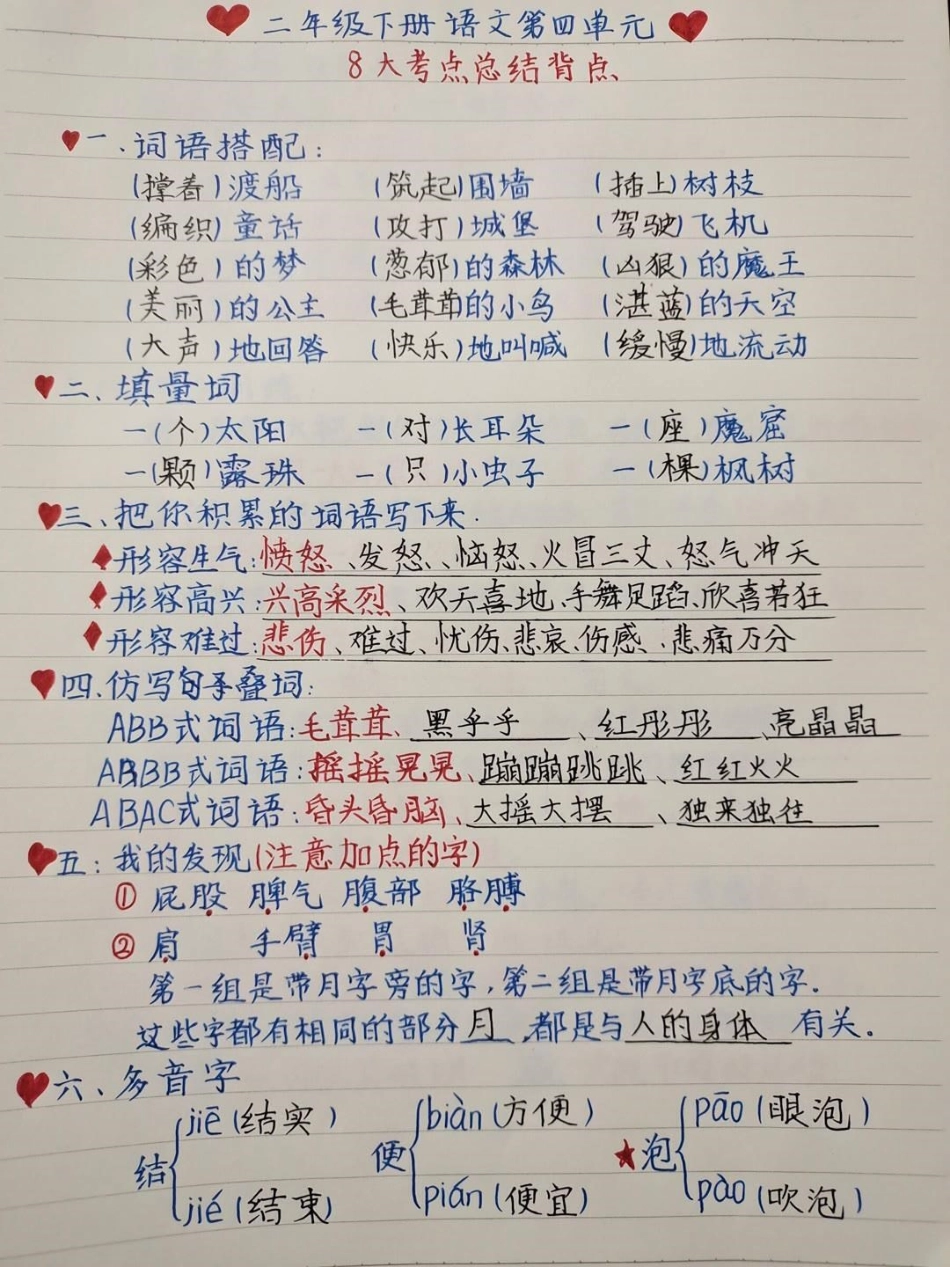 二年级下册语文第四单元
8大考点总结背点
一.词语搭配:
(撑着)渡船 (筑起)围墙 (插上)树枝
(编织)童话 (攻打)城堡 (驾驶)飞机
(彩色)的梦 (葱郁)的森林 (凶狠)的魔王
(美丽)的公主 (毛茸茸)的小鸟 (湛蓝)的天空
(大声)地回答 (快乐)地叫喊 (缓慢)地流动
二、填量词
一(个)太阳 一(对)长耳朵 一(座)魔窟
一(颗)露珠 一(只)小虫子 一(棵)枫树
三、把你积累的词语写下来.
形容生气:愤怒、发怒、恼怒、火冒三丈、怒气冲天
形容高兴:兴高采烈、欢天喜地、手舞足蹈、欣喜若狂
形容难过:悲伤、难过、忧伤、悲哀、伤感、悲痛万分
四.仿写句子叠词:
ABB式词语:毛茸茸、黑乎乎、红彤彤、亮晶晶
ABBB式词语:摇摇晃晃、蹦蹦跳跳、红红火火
ABAC式词语:昏头昏脑、大摇大摆、独来独往
五:我的发现(注意加点的字)
① 屁股 脾气 腹部 胳膊
② 肩 手臂 胃 肾
第一组是带月字旁的字,第二组是带月字底的字.
这些字都有相同的部分月,都是与人的身体有关。
六、多音字
结 jiē(结实) jié(结束) 便 biàn(方便) pián(便宜) 泡 pāo(眼泡) pào(吹泡)